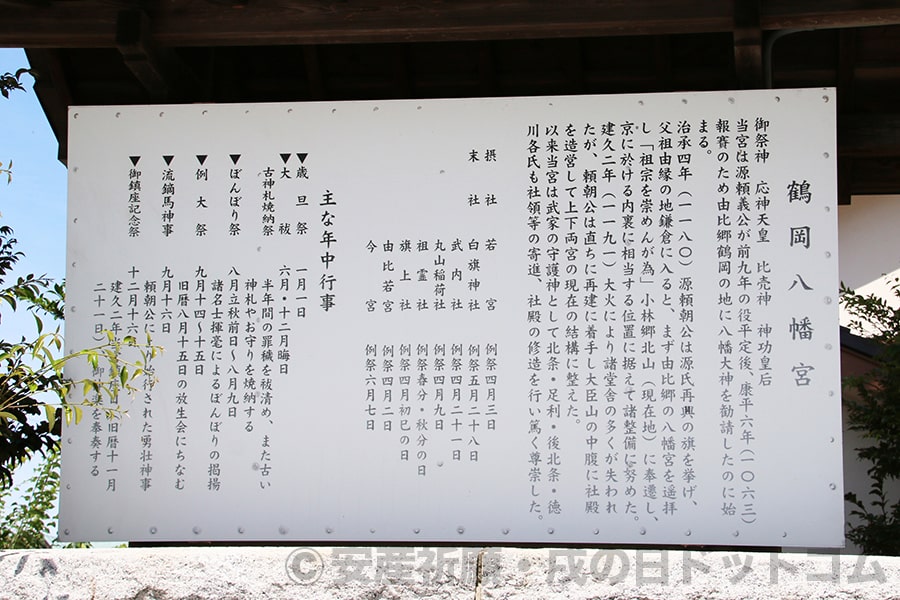 鶴岡八幡宮
御祭神 応神天皇 比売神 神功皇后
当宮は源頼義公が前九年の役平定後、康平六年(一〇六三)
報賽のため由比郷鶴岡の地に八幡大神を勧請したのに始
まる。
治承四年(一一八〇)源頼朝公は源氏再興の旗を挙げ、
父祖由縁の地鎌倉に入ると、まず由比郷の八幡宮を遥拝
し「祖宗を崇めんが為」小林郷北山(現在地)に奉遷し、
京に於ける内裏に相当する位置に据えて諸整備に努めた。
建久二年(一一九一)大火により諸堂舎の多くが失われ
たが、頼朝公は直ちに再建に着手し大臣山の中腹に社殿
を造営して上下両宮の現在の結構に整えた。
以来当宮は武家の守護神として北条・足利・後北条・徳
川各氏も社領等の寄進、社殿の修造を行い篤く尊崇した。
摂社 若宮 例祭四月三日
末社 白旗神社 例祭五月二十八日
武内社 例祭四月二十一日
丸山稲荷社 例祭四月九日
祖霊社 例祭春分・秋分の日
旗上社 例祭四月初巳の日
由比若宮 例祭四月二日
今宮 例祭六月七日
主な年中行事
▼歳旦祭 一月一日
▼大祓 六月・十二月晦日
古神札焼納祭 半年間の罪穢を祓清め、また古い
神札やお守りを焼納する
▼ぼんぼり祭 八月立秋前日〜八月九日
諸名士揮毫によるぼんぼりの掲揚
▼例大祭 九月十四〜十五日
旧暦八月十五日の放生会にちなむ
▼流鏑馬神事 九月十六日
頼朝公に 始行された勇壮神事
▼御鎮座記念祭 十二月十六
建久二年 旧暦十一月
二十一日) 御 楽を奉奏する
© 安産祈願・戌の日ドットコム